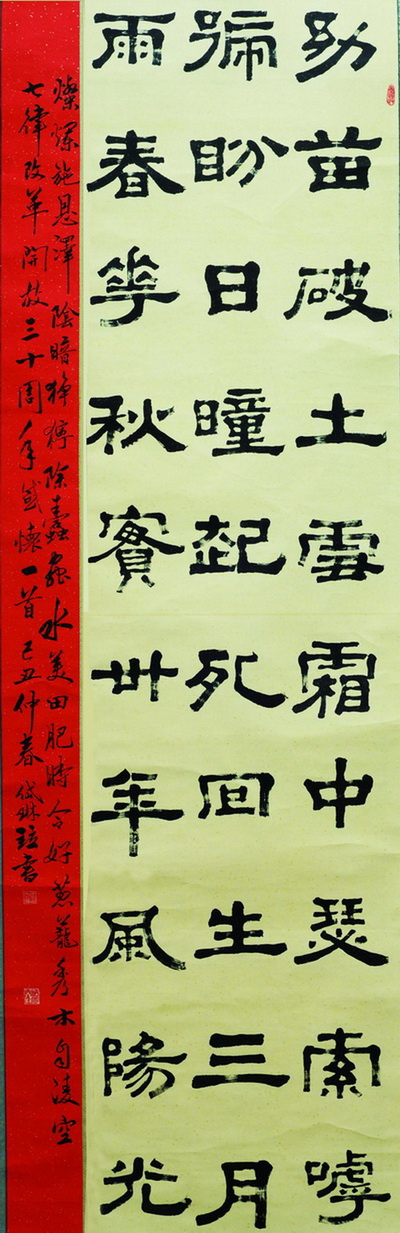 幼苗破土雪霜中瑟索嘑
號盼日曈起死回生三月
雨春華秋實卅年風陽光
燦爛施恩澤陰暗狰狞除蠹蟲水美田肥時令好葱蘢秀木自凌空
七律改革開放三十周年感懷一首己丑仲春書